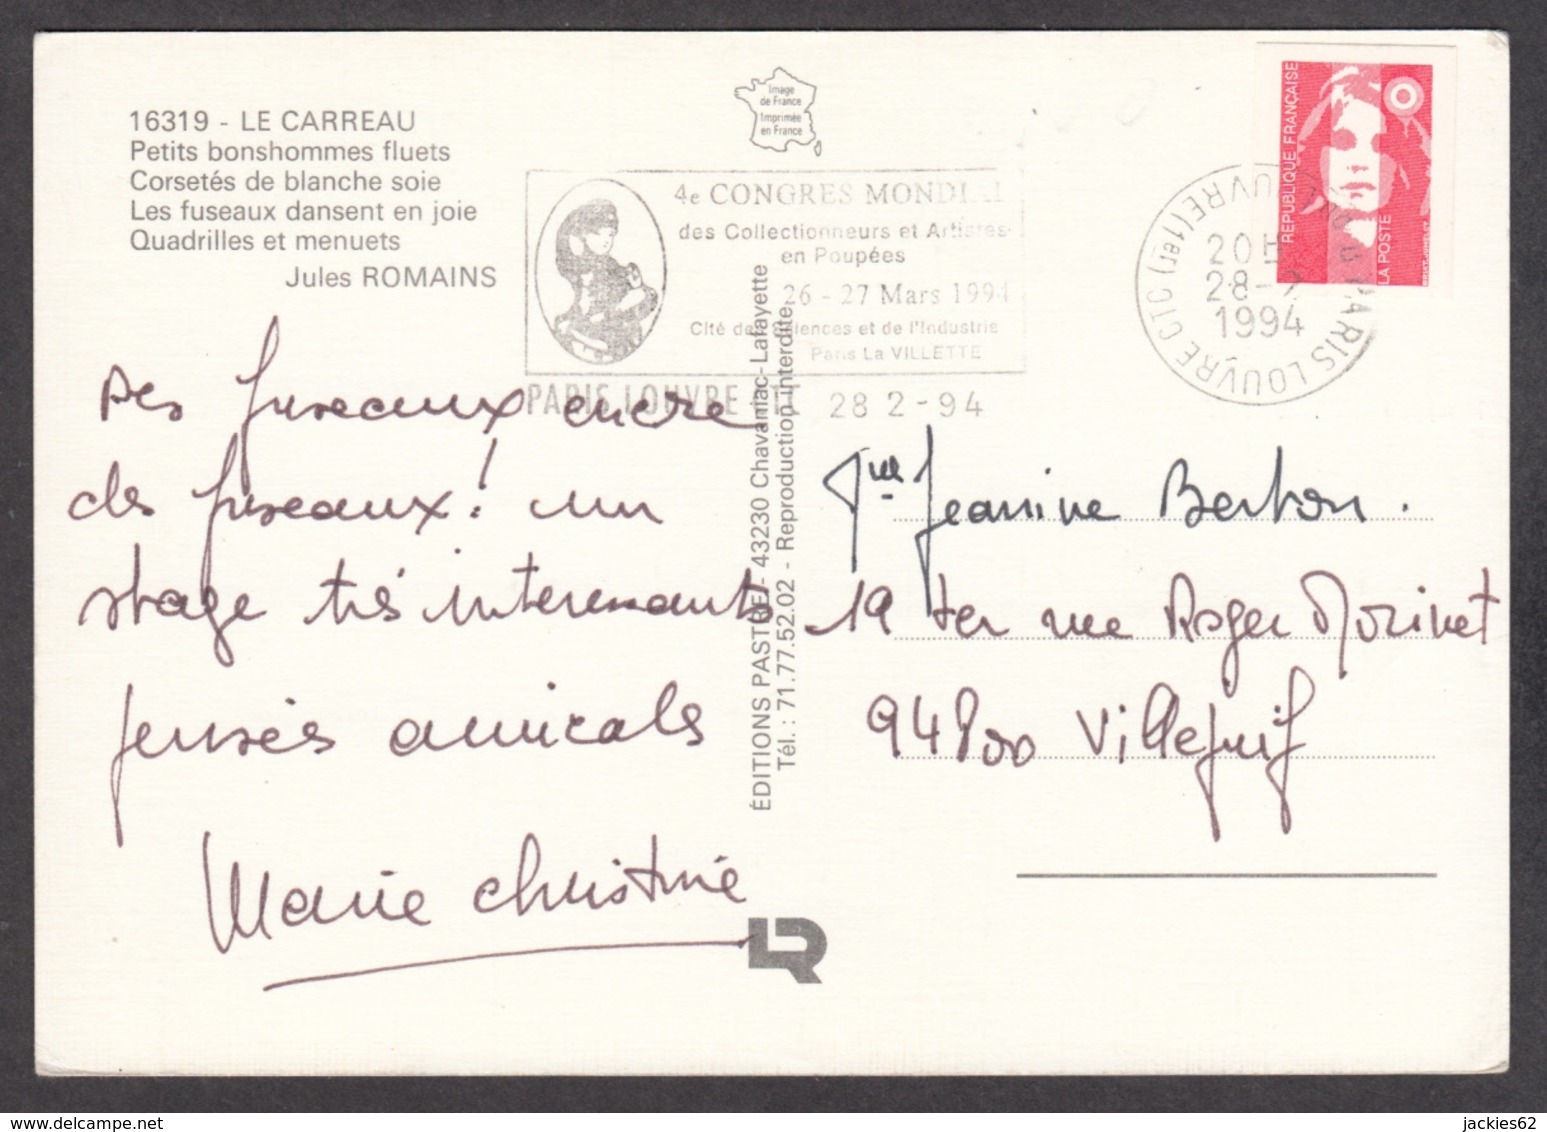 16319 - LE CARREAU
Petits bonshommes fluets
Corsetés de blanche soie
Les fuseaux dansent en joie
Quadrilles et menuets
Jules ROMAINS
Image
de France
Imprimée
en France
4e CONGRES MONDIAL
des Collectionneurs et Artistes
en Poupées
26 - 27 Mars 1994
Cité des Sciences et de l'Industrie
Paris La VILLETTE
PARIS LOUVRE CTC 28 2 - 94
REPUBLIQUE FRANÇAISE
LA POSTE
PARIS LOUVRE CTC (1er)
20H
28-2
1994
Des fuseaux encore
des fuseaux! un
stage très interessants
pensées amicals
Marie christine
ÉDITIONS PASTRE - 43230 Chavaniac-Lafayette
Tél. : 71.77.52.02 - Reproduction interdite.
Jeanine Berton.
19 ter rue Roger Morinet
94800 Villejuif
LR
delcampe.net
jackies62